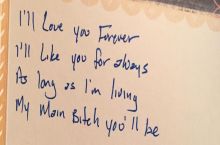 I'll Love you Forever
I'll Like you for always
As long as I'm living
My Main Bitch you'll be